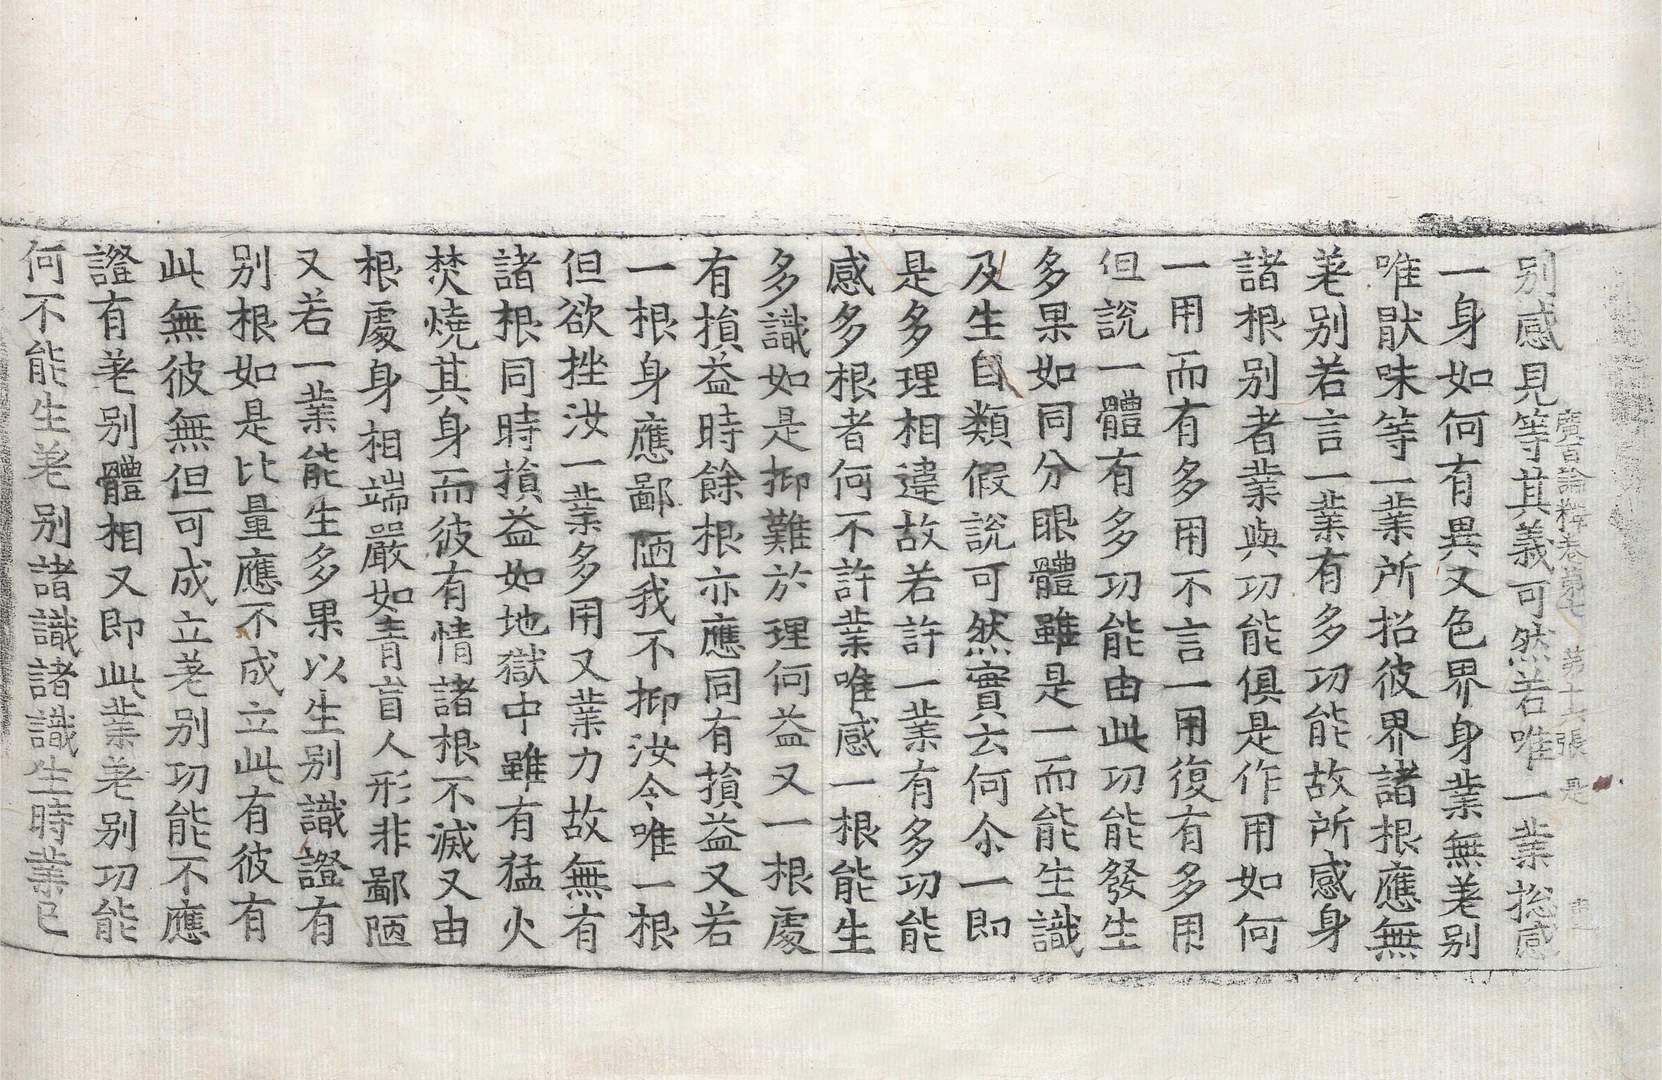 廣百論釋卷第七 第十六張 是
別感見等其義可然若唯一業揔感
一身如何有異又色界身業無差別
唯猒味等一業所招彼界諸根應無
差別若言一業有多功能故所感身
諸根別者業與功能俱是作用如何
一用而有多用不言一用復有多用
但說一體有多功能由此功能發生
多果如同分眼體雖是一而能生識
及生自類假說可然實云何尒一即
是多理相違故若許一業有多功能
感多根者何不許業唯感一根能生
多識如是抑難於理何益又一根處
有損益時餘根亦應同有損益又若
一根身應鄙陋我不抑汝今唯一根
但欲挫汝一業多用又業力故無有
諸根同時損益如地獄中雖有猛火
焚燒其身而彼有情諸根不滅又由
根處身相端嚴如青盲人形非鄙陋
又若一業能生多果以生別識證有
別根如是比量應不成立此有彼有
此無彼無但可成立差別功能不應
證有差別體相又即此業差別功能
何不能生差別諸識諸識生時業已